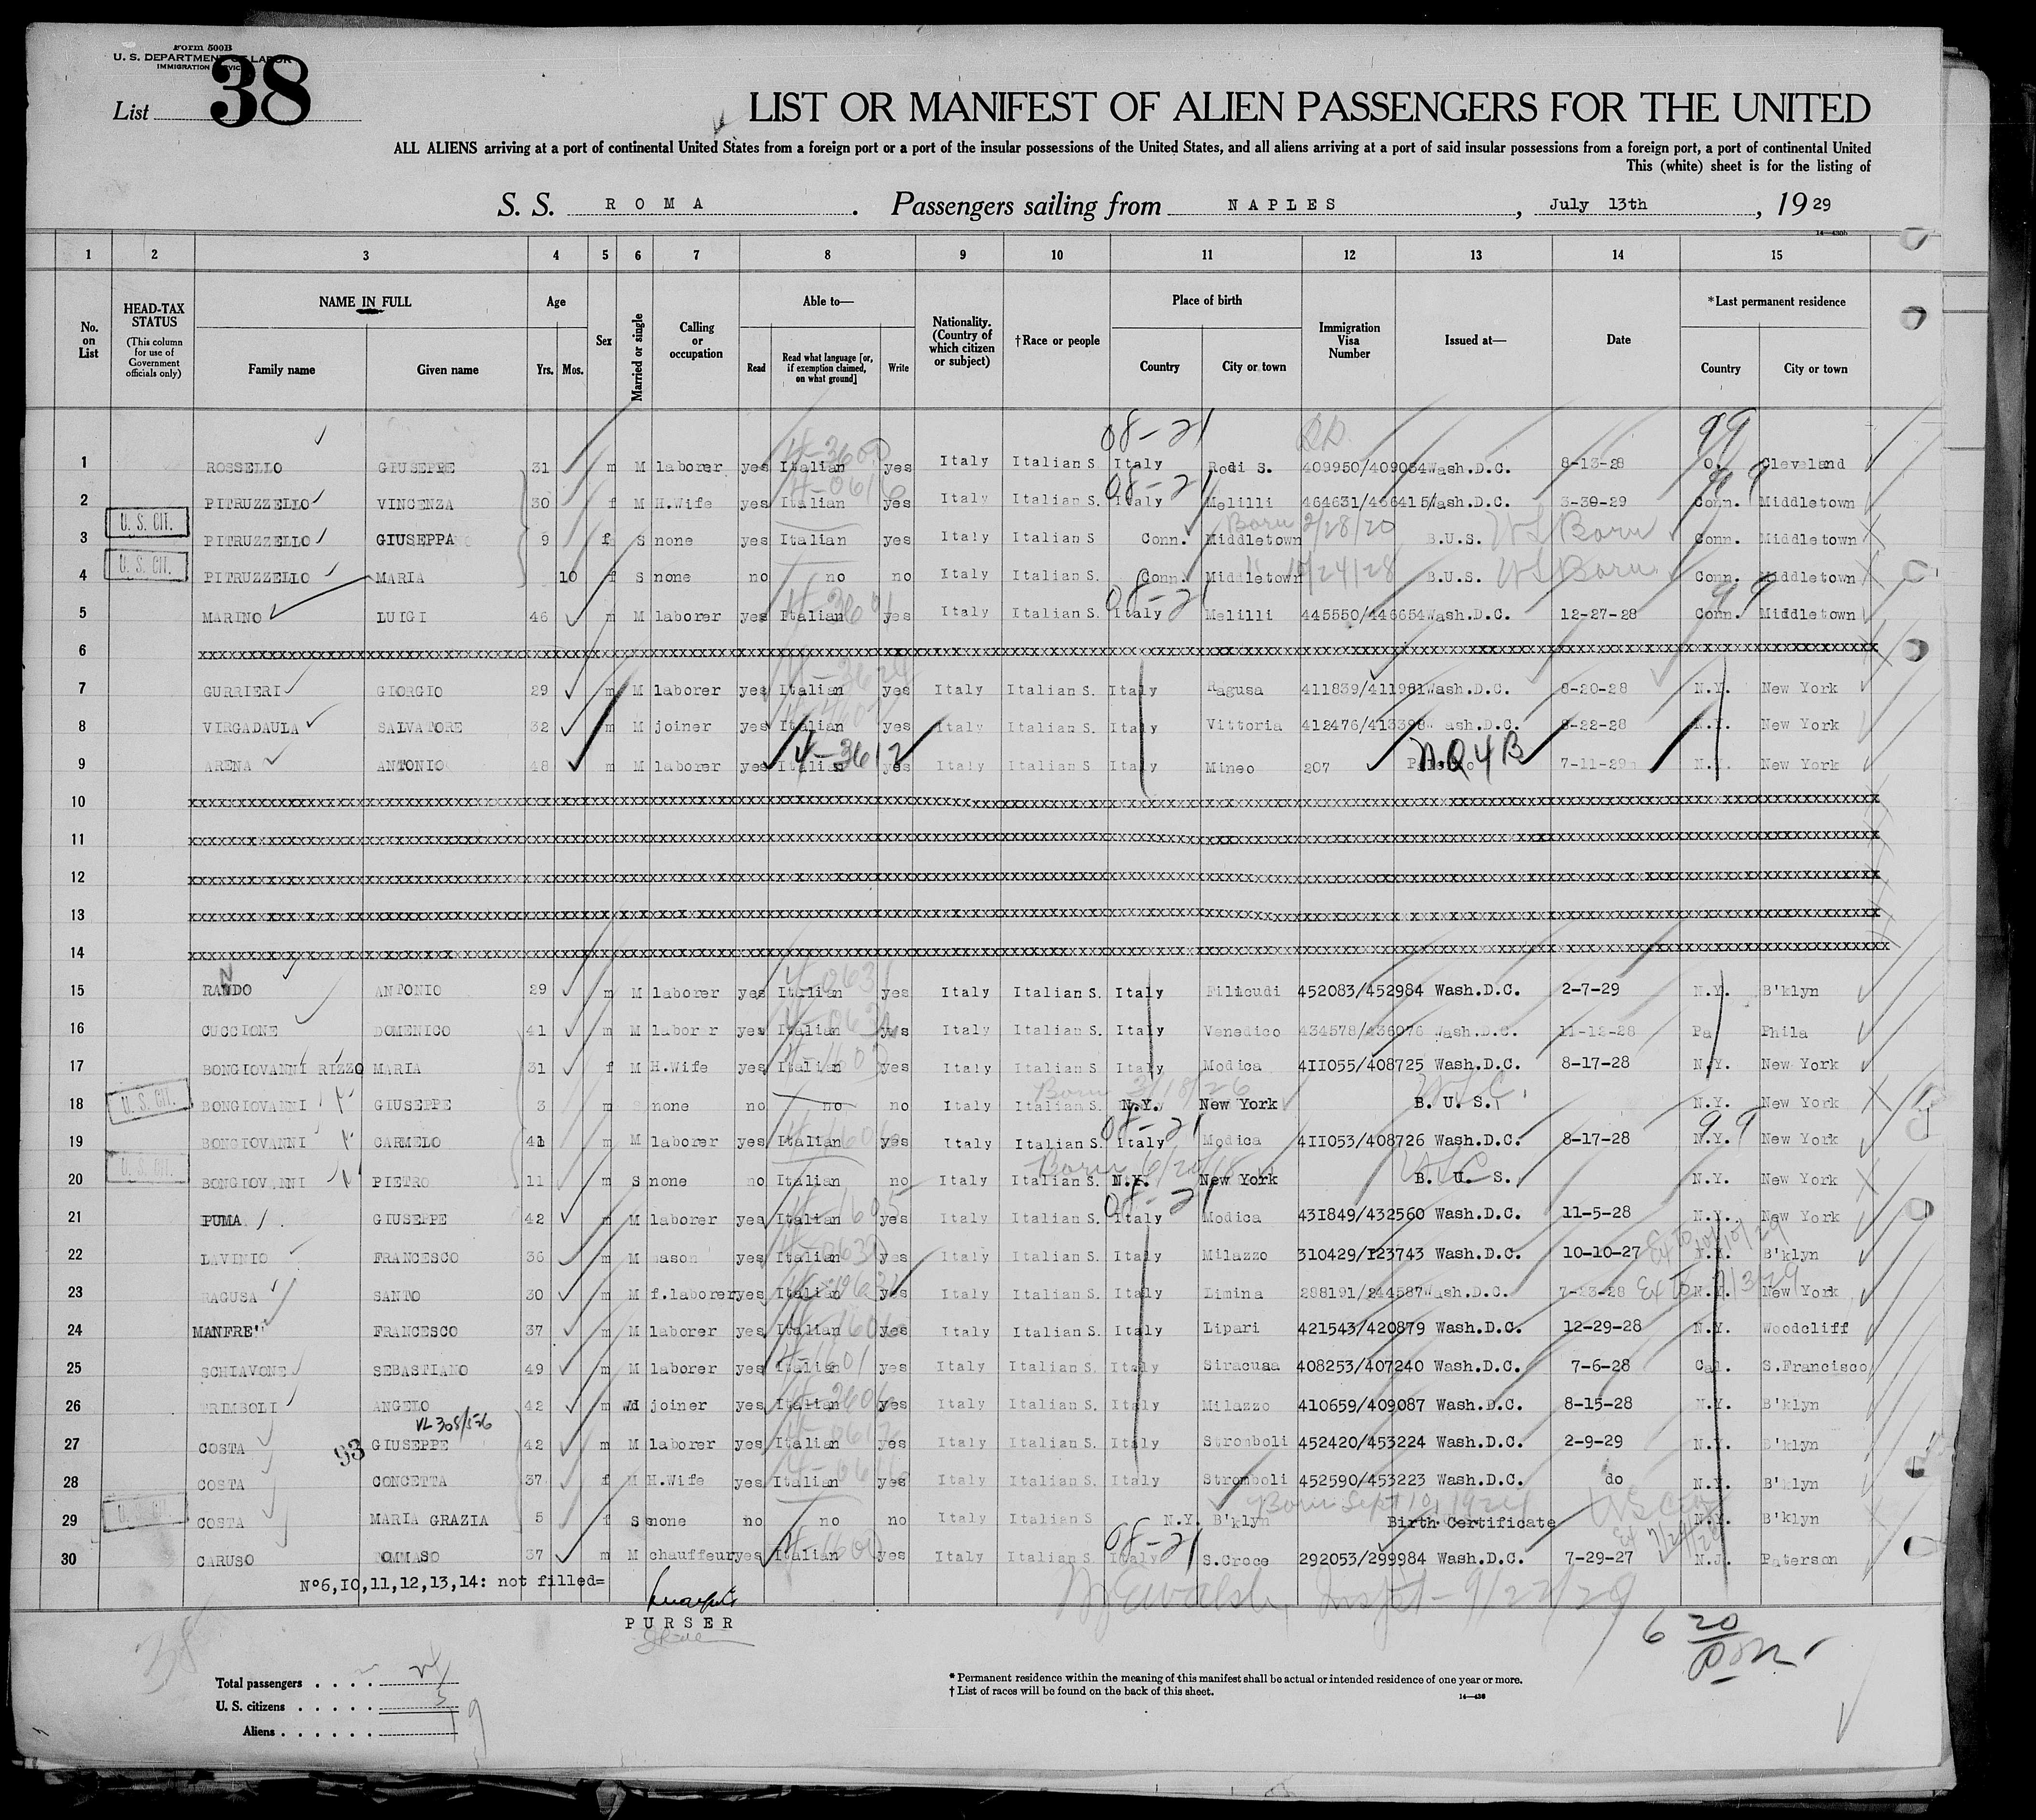 Form 500B
U. S. DEPARTMENT OF LABOR
IMMIGRATION SERVICE
List 38
LIST OR MANIFEST OF ALIEN PASSENGERS FOR THE UNITED
ALL ALIENS arriving at a port of continental United States from a foreign port or a port of the insular possessions of the United States, and all aliens arriving at a port of said insular possessions from a foreign port, a port of continental United
This (white) sheet is for the listing of
S. S. ROMA. Passengers sailing from NAPLES, July 13th, 1929
14—430b
1 2 3 4 5 6 7 8 9 10 11 12 13 14 15
No. on List
HEAD-TAX STATUS (This column for use of Government officials only)
NAME IN FULL
Family name Given name
Age
Yrs. Mos.
Sex
Married or single
Calling or occupation
Able to—
Read Read what language [or, if exemption claimed, on what ground] Write
Nationality. (Country of which citizen or subject)
†Race or people
Place of birth
Country City or town
Immigration Visa Number
Issued at—
Date
*Last permanent residence
Country City or town
08-21 99
1 ROSSELLO GIUSEPPE 31 m M laborer yes Italian yes Italy Italian S Italy Rodi S. 409950/409034 Wash.D.C. 8-13-28 O. Cleveland
08-21 99
2 PITRUZZELLO VINCENZA 30 f M H.Wife yes Italian yes Italy Italian S. Italy Melilli 464631/466415/ Wash.D.C. 3-30-29 Conn. Middletown
U. S. CIT. Born 2/28/20
3 PITRUZZELLO GIUSEPPA 9 f S none yes Italian yes Italy Italian S Conn. Middletown B.U.S. US Born Conn. Middletown
U. S. CIT. 10/24/28
4 PITRUZZELLO MARIA 10 f S none no no no Italy Italian S. Conn. Middletown B.U.S. US Born Conn. Middletown
08-21 99
5 MARINO LUIGI 46 m M laborer yes Italian yes Italy Italian S. Italy Melilli 445550/446654 Wash.D.C. 12-27-28 Conn. Middletown
6
7 GURRIERI GIORGIO 29 m M laborer yes Italian yes Italy Italian S. Italy Ragusa 411839/411961 Wash.D.C. 8-20-28 N.Y. New York
8 VIRGADAULA SALVATORE 32 m M joiner yes Italian yes Italy Italian S. Italy Vittoria 412476/413398 Wash.D.C. 8-22-28 N.Y. New York
4-3612 NQ4B
9 ARENA ANTONIO 48 m M laborer yes Italian yes Italy Italian S Italy Mineo 207 7-11-29 N.Y. New York
10
11
12
13
14
15 RANDO ANTONIO 29 m M laborer yes Italian yes Italy Italian S. Italy Filicudi 452083/452984 Wash.D.C. 2-7-29 N.Y. B'klyn
16 CUCCIONE DOMENICO 41 m M labor r yes Italian yes Italy Italian S. Italy Venedico 434578/436076 Wash.D.C. 11-12-28 Pa Phila
17 BONGIOVANNI RIZZO MARIA 31 f M H.Wife yes Italian yes Italy Italian S. Italy Modica 4II055/408725 Wash.D.C. 8-17-28 N.Y. New York
U. S. CIT. Born 3/18/26 USC
18 BONGIOVANNI GIUSEPPE 3 m none no no no Italy Italian S. N.Y. New York B. U. S. N.Y. New York
08-21 99
19 BONGIOVANNI CARMELO 41 m M laborer yes Italian yes Italy Italian S. Italy Modica 4II053/408726 Wash.D.C. 8-17-28 N.Y. New York
U. S. CIT. Born 6/20/18 USC
20 BONGIOVANNI PIETRO 11 m S none no Italian no Italy Italian S. N.Y. New York B. U. S. N.Y. New York
08-21
21 PUMA GIUSEPPE 42 m M laborer yes Italian yes Italy Italian S. Italy Modica 43I849/432560 Wash.D.C. 11-5-28 N.Y. New York
22 LAVINIO FRANCESCO 36 m M mason yes Italian yes Italy Italian S. Italy Milazzo 310429/123743 Wash.D.C. 10-10-27 N.Y. B'klyn
23 RAGUSA SANTO 30 m M f.laborer yes Italian yes Italy Italian S. Italy Limina 288191/244587 Wash.D.C. 7-13-28 N.Y. New York
24 MANFRE' FRANCESCO 37 m M laborer yes Italian yes Italy Italian S. Italy Lipari 421543/420879 Wash.D.C. 12-29-28 N.Y. Woodcliff
25 SCHIAVONE SEBASTIANO 49 m M laborer yes Italian yes Italy Italian S. Italy Siracusa 408253/407240 Wash.D.C. 7-6-28 Cal. S.Francisco
26 TRIMBOLI ANGELO 42 m Wd joiner yes Italian yes Italy Italian S. Italy Milazzo 410659/409087 Wash.D.C. 8-15-28 N.Y. B'klyn
VL 308/526
27 COSTA 93 GIUSEPPE 42 m M laborer yes Italian yes Italy Italian S. Italy Stromboli 452420/453224 Wash.D.C. 2-9-29 N.Y. B'klyn
28 COSTA CONCETTA 37 f M H.Wife yes Italian yes Italy Italian S. Italy Stromboli 452590/453223 Wash.D.C. do N.Y. B'klyn
U. S. CIT. Born Sept 10, 1924
29 COSTA MARIA GRAZIA 5 f S none no no no Italy Italian S N.Y. B'klyn Birth Certificate N.Y. B'klyn
08-21
30 CARUSO TOMMASO 37 m M chauffeur yes Italian yes Italy Italian S. Italy S.Croce 292053/299984 Wash.D.C. 7-29-27 N.J. Paterson
N°6,I0,11,12,13,14: not filled=
PURSER
38
6 20
Total passengers
U. S. citizens
Aliens 19
* Permanent residence within the meaning of this manifest shall be actual or intended residence of one year or more.
† List of races will be found on the back of this sheet.
14—430